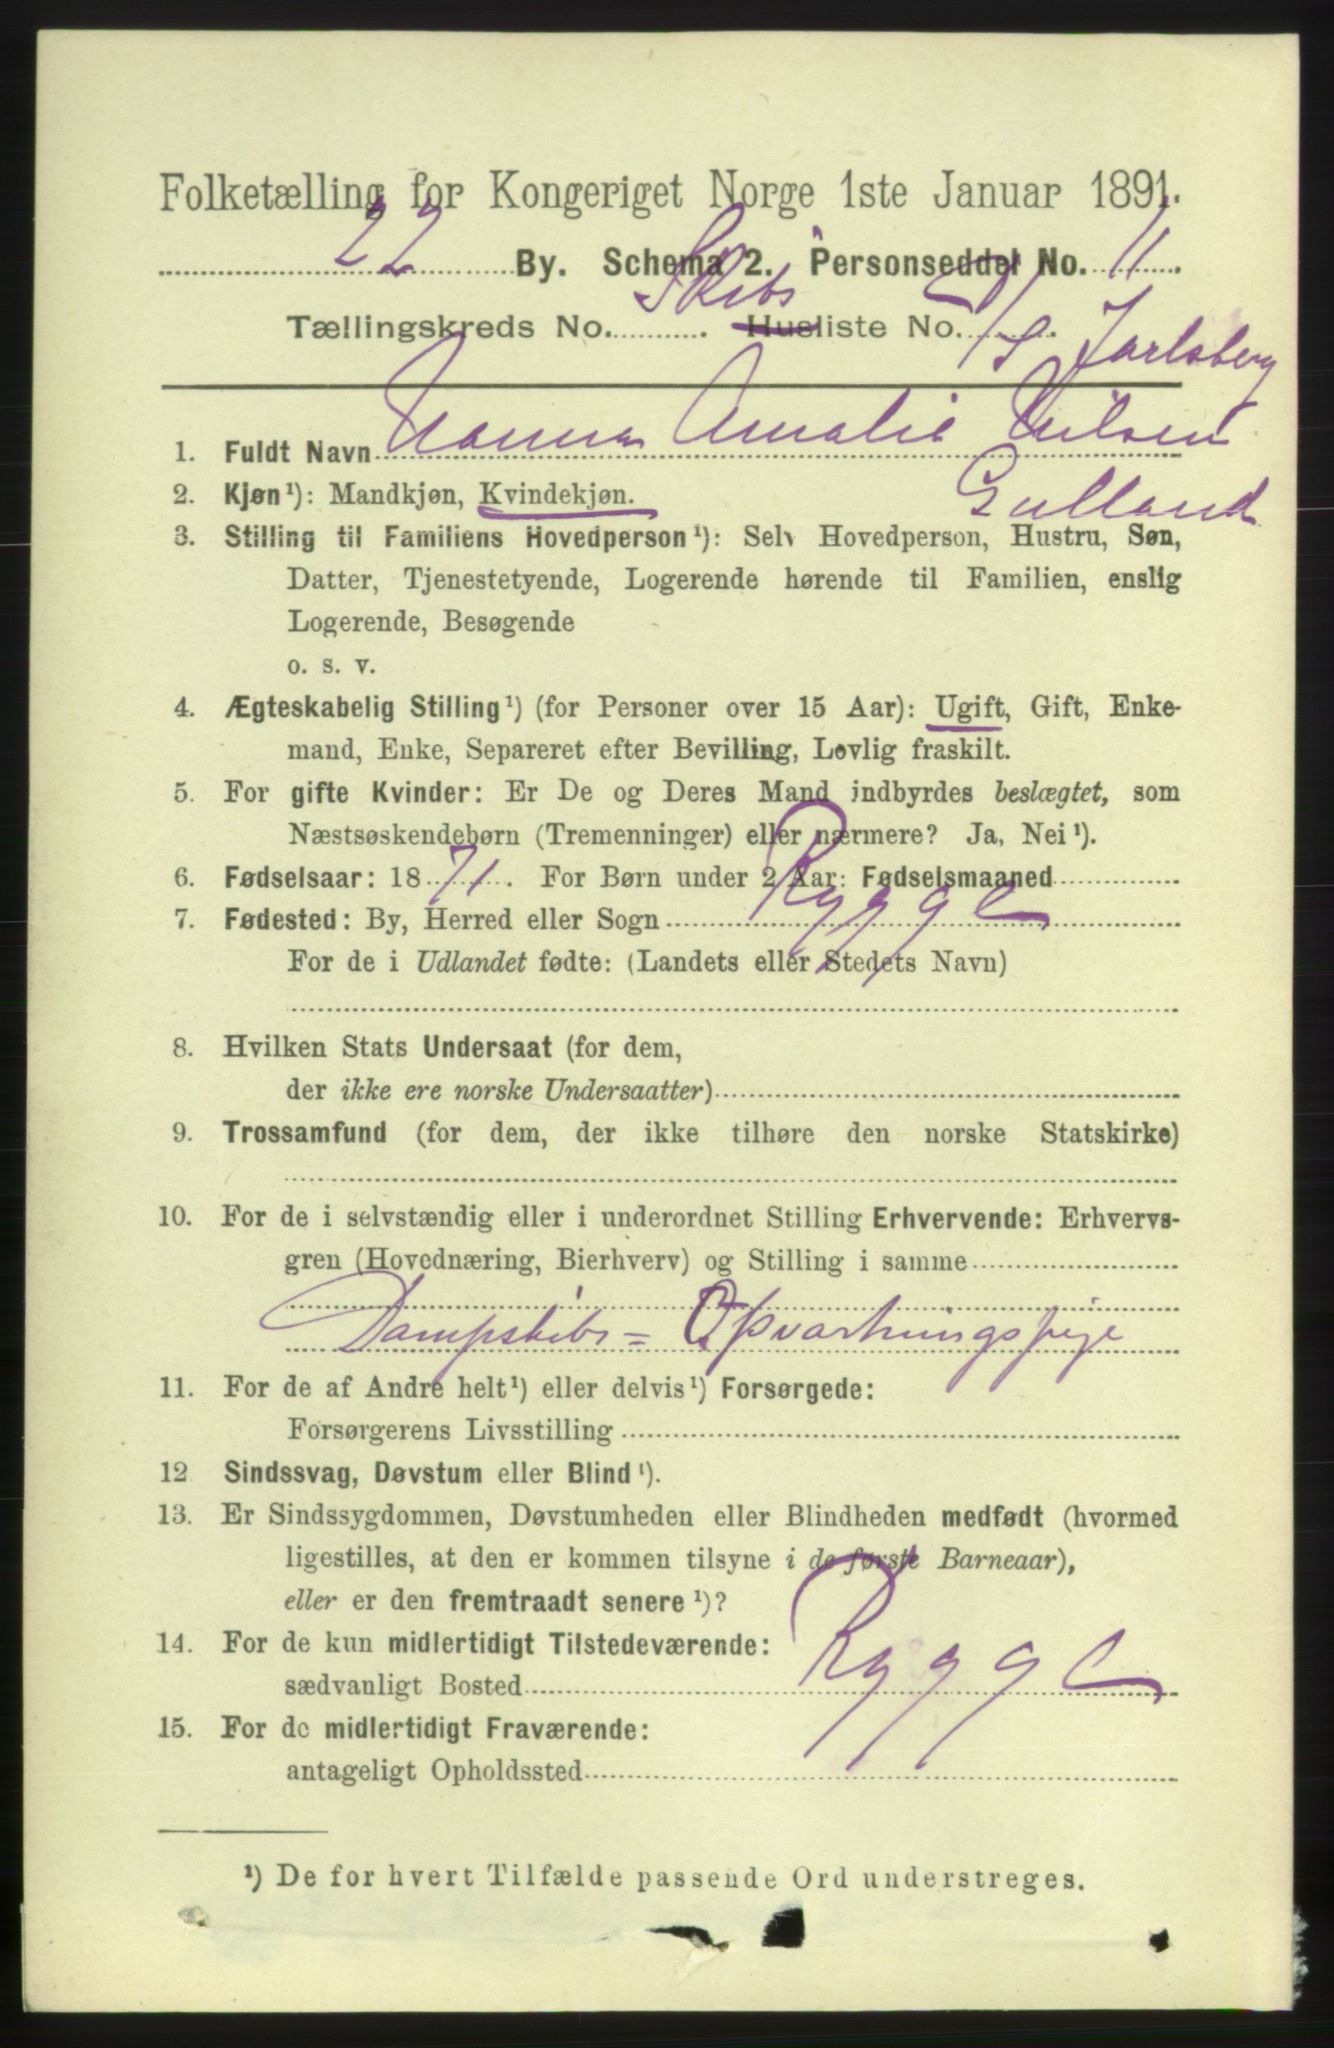 Folketælling for Kongeriget Norge 1ste Januar 1891.
22 By. Schema 2. Personseddel No. 11
Tællingskreds No. ........ Skibs Husliste No. D/S Jarlsberg
1. Fuldt Navn Nanna Amalie Nilsen
Gulland
2. Kjøn¹): Mandkjøn, Kvindekjøn.
3. Stilling til Familiens Hovedperson¹): Selv Hovedperson, Hustru, Søn,
Datter, Tjenestetyende, Logerende hørende til Familien, enslig
Logerende, Besøgende
o. s. v.
4. Ægteskabelig Stilling¹) (for Personer over 15 Aar): Ugift, Gift, Enke-
mand, Enke, Separeret efter Bevilling, Lovlig fraskilt.
5. For gifte Kvinder: Er De og Deres Mand indbyrdes beslægtet, som
Næstsøskendebørn (Tremenninger) eller nærmere? Ja, Nei¹).
6. Fødselsaar: 1871. For Børn under 2 Aar: Fødselsmaaned
7. Fødested: By, Herred eller Sogn Rygge
For de i Udlandet fødte: (Landets eller Stedets Navn)
8. Hvilken Stats Undersaat (for dem,
der ikke ere norske Undersaatter)
9. Trossamfund (for dem, der ikke tilhøre den norske Statskirke)
10. For de i selvstændig eller i underordnet Stilling Erhvervende: Erhvervs-
gren (Hovednæring, Bierhverv) og Stilling i samme
Dampskibs = Opvartningspige
11. For de af Andre helt¹) eller delvis¹) Forsørgede:
Forsørgerens Livsstilling
12 Sindssvag, Døvstum eller Blind¹).
13. Er Sindssygdommen, Døvstumheden eller Blindheden medfødt (hvormed
ligestilles, at den er kommen tilsyne i de første Barneaar),
eller er den fremtraadt senere¹)?
14. For de kun midlertidigt Tilstedeværende:
sædvanligt Bosted Rygge
15. For de midlertidigt Fraværende:
antageligt Opholdssted
¹) De for hvert Tilfælde passende Ord understreges.